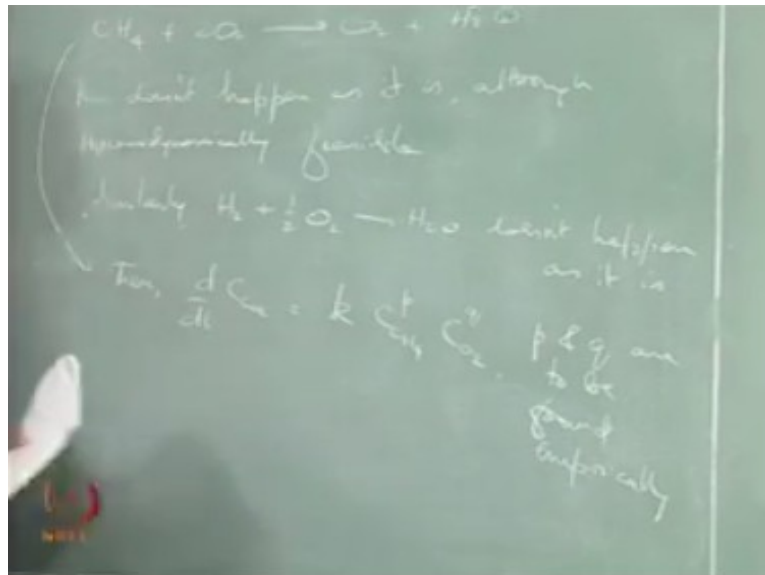 CH₄ + 2O₂ → CO₂ + H₂O
doesn't happen as it is, although
thermodynamically feasible
Similarly H₂ + ½ O₂ → H₂O doesn't happen
as it is
Then, d/dt C = k C_CH₄^p C_O₂^q. p & q are
to be
found
empirically
NPTEL